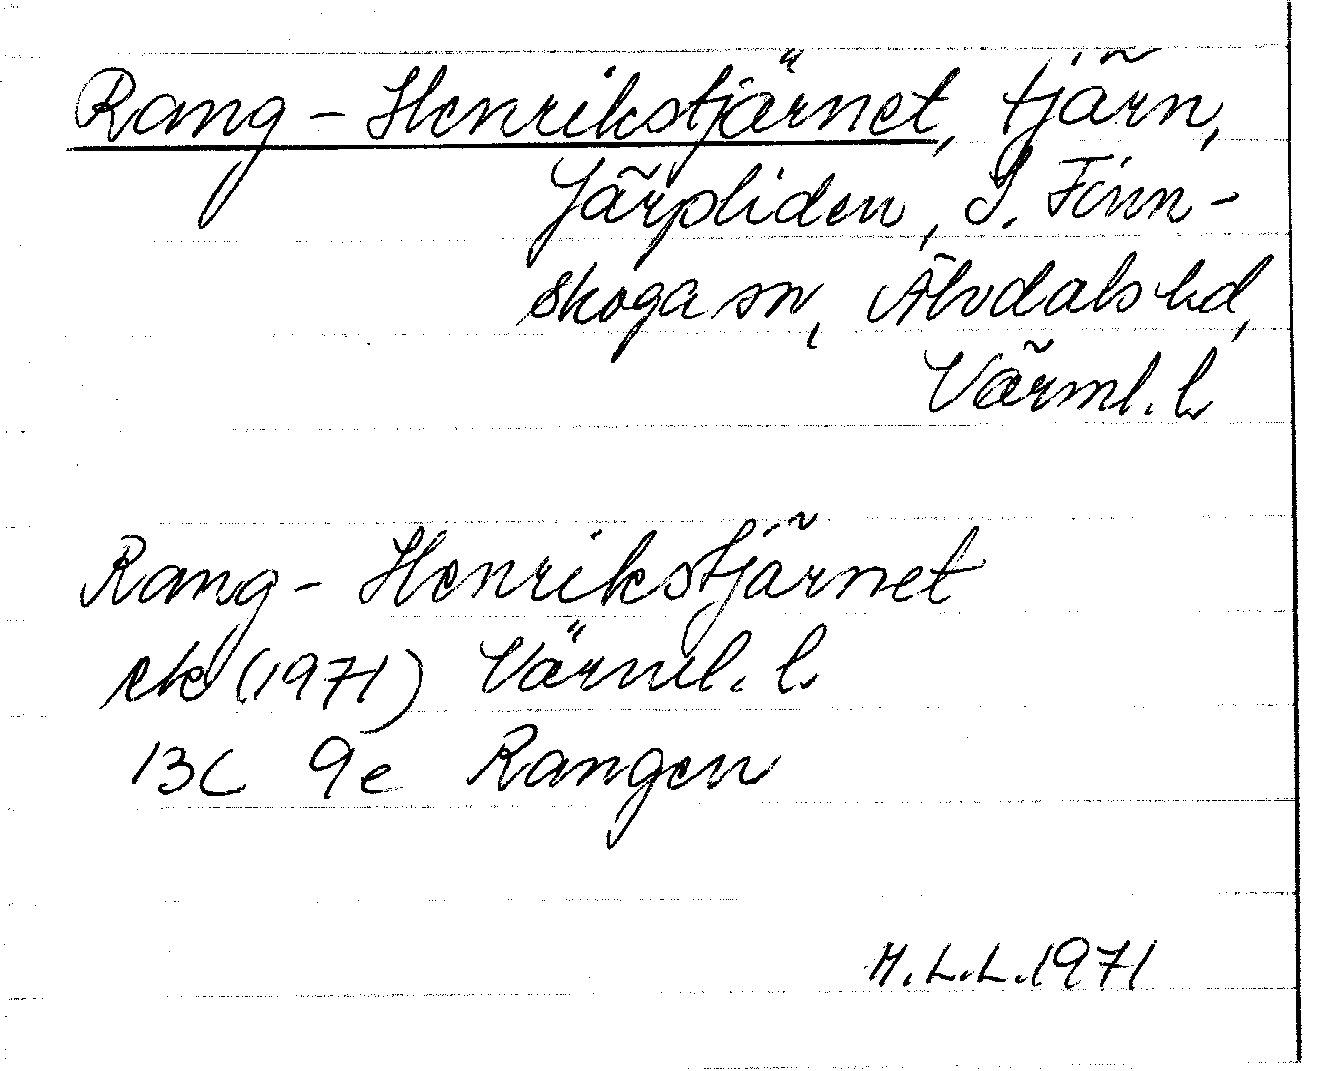 Rang-Henrikstjärnet, tjärn,
Järpliden, S. Finn-
skoga sn, Älvdals hd,
Värml. l.
Rang-Henrikstjärnet
ek (1971) Värml. l.
13C 9e Rangen
M.L.L. 1971